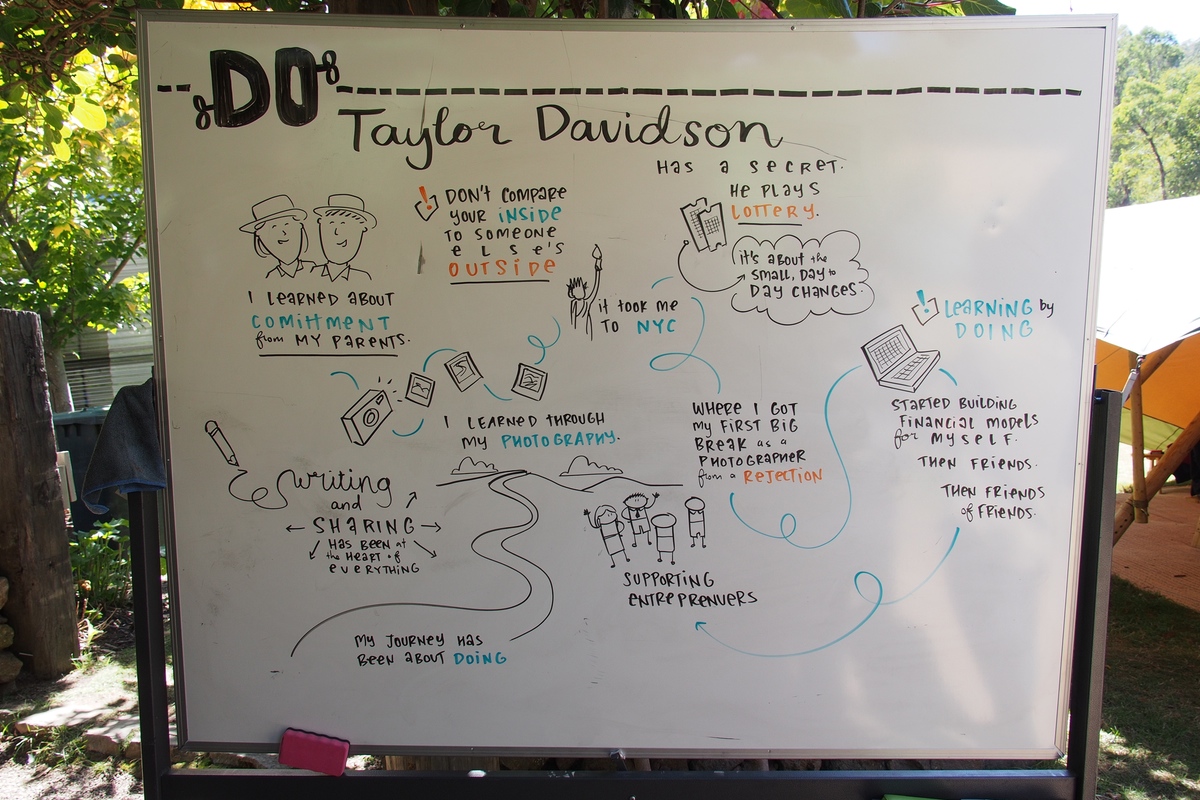 DO
Taylor Davidson
HAS A SECRET.
HE PLAYS
LOTTERY.
it's ABOUT the
SMALL, DAY to
DAY CHANGES.
DON'T COMPARE
YOUR INSIDE
TO SOMEONE
eLSe'S
OUTSIDE
I LEARNED ABOUT
COMITTMENT
from MY PARENTS.
I LEARNED THROUGH
MY PHOTOGRAPHY.
it TOOK ME
TO NYC
WHERE I GOT
MY FIRST BIG
BREAK as a
PHOTOGRAPHER
from a REJECTION
LEARNING by
DOING
STARTED BUILDING
FINANCIAL MODELS
for MYSELF.
THEN FRIENDS.
THEN FRIENDS
of FRIENDS.
SUPPORTING
ENTREPRENUERS
writing
and
SHARING
HAS BEEN at
the HEART of
eVERYTHING
MY JOURNEY HAS
BEEN ABOUT DOING